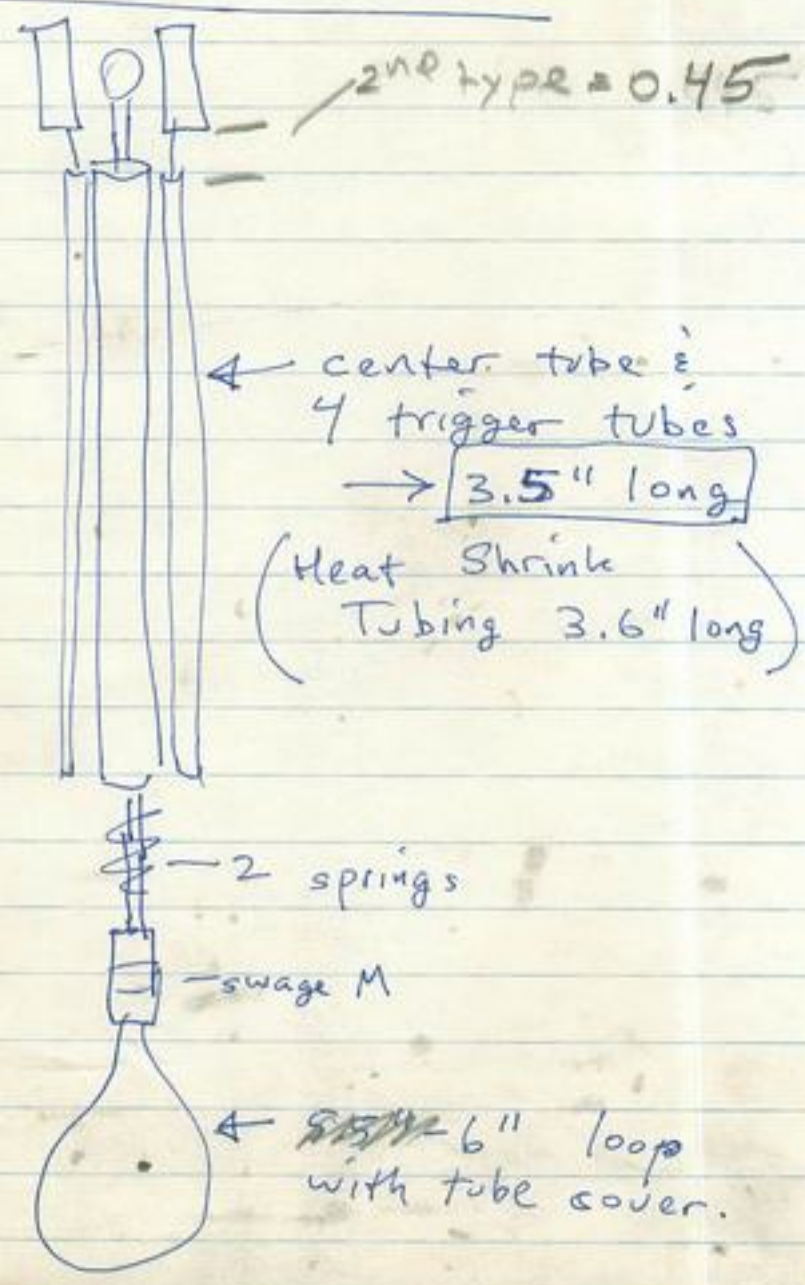 2nd type = 0.45
← center tube &
4 trigger tubes
→ 3.5" long
(Heat Shrink
Tubing 3.6" long)
- 2 springs
- swage M
← 6" loop
with tube cover.